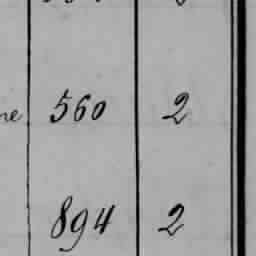 ne 560 2
894 2